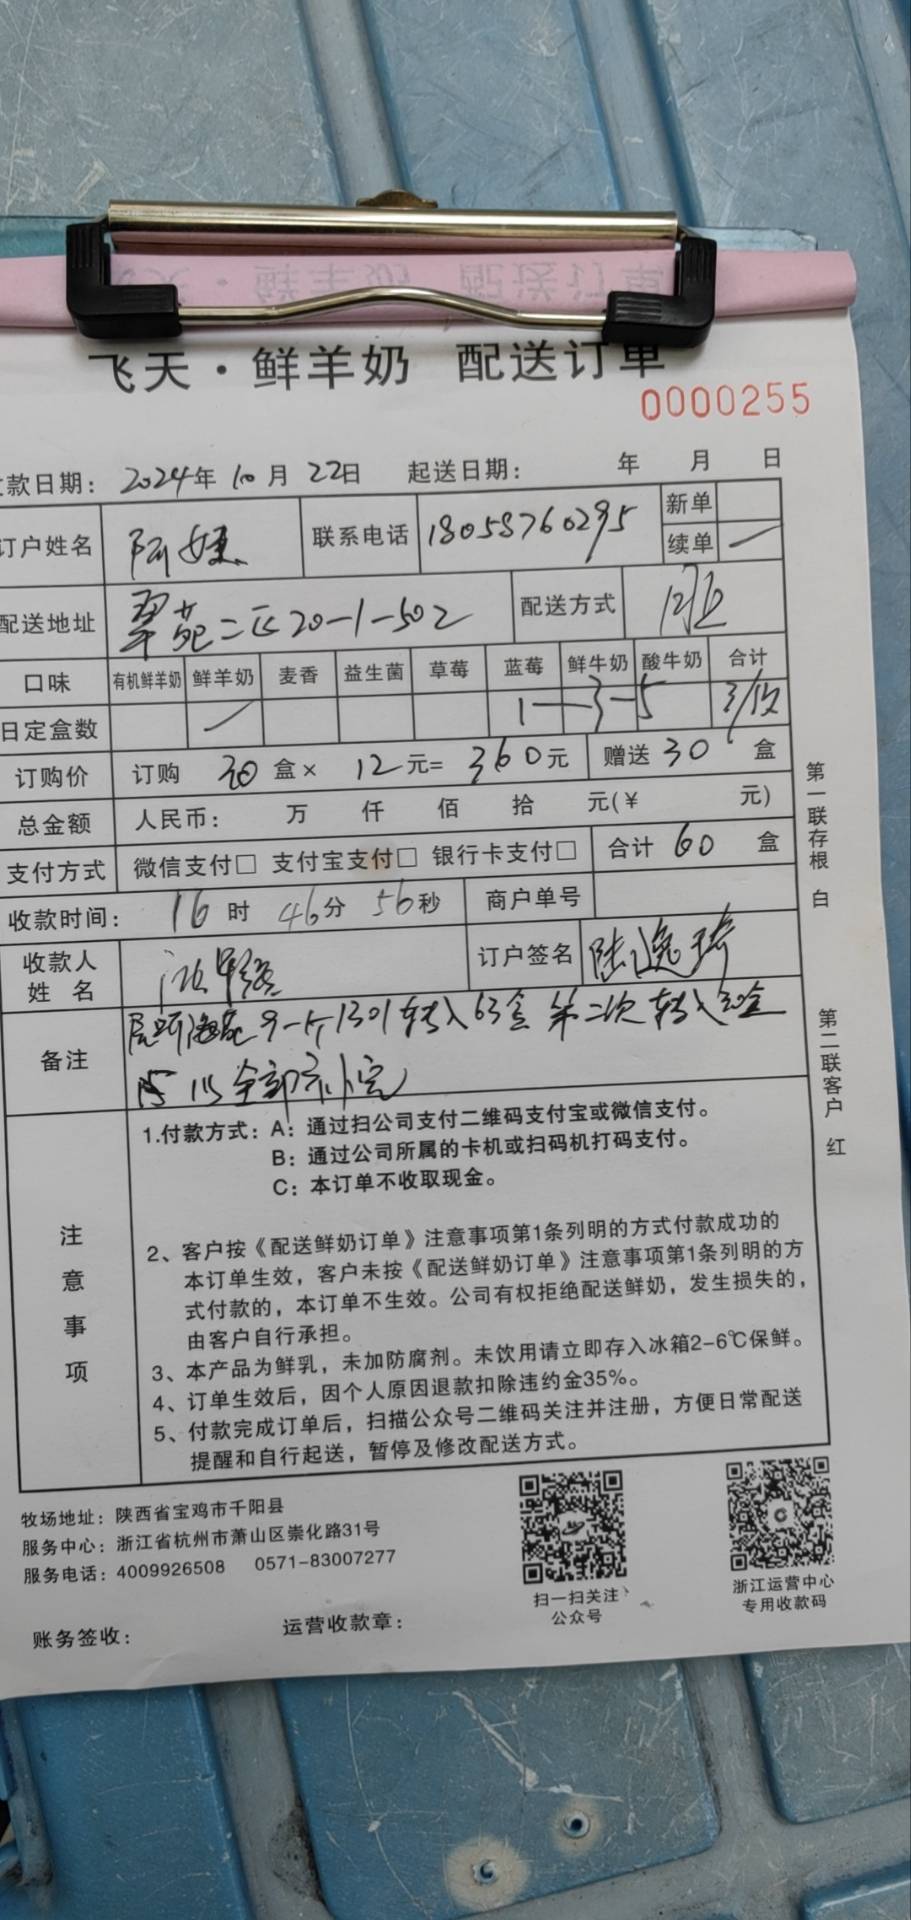 飞天·鲜羊奶 配送订单
0000255
款日期: 2024年10月22日 起送日期: 年 月 日
订户姓名 阿姨 联系电话 18058760295 新单
续单
配送地址 翠苑二区20-1-502 配送方式
口味 有机鲜羊奶 鲜羊奶 麦香 益生菌 草莓 蓝莓 鲜牛奶 酸牛奶 合计
日定盒数 1—3—5 3/次
订购价 订购 30盒× 12元= 360元 赠送 30 盒
总金额 人民币: 万 仟 佰 拾 元(¥ 元)
支付方式 微信支付□ 支付宝支付□ 银行卡支付□ 合计 60 盒
收款时间: 16时 46分 56秒 商户单号
收款人姓名 订户签名 陆逸琦
备注 9-1301转入63盒 第二次转入
全部
注意事项
1.付款方式: A: 通过扫公司支付二维码支付宝或微信支付。
B: 通过公司所属的卡机或扫码机打码支付。
C: 本订单不收取现金。
2、客户按《配送鲜奶订单》注意事项第1条列明的方式付款成功的
本订单生效，客户未按《配送鲜奶订单》注意事项第1条列明的方
式付款的，本订单不生效。公司有权拒绝配送鲜奶，发生损失的，
由客户自行承担。
3、本产品为鲜乳，未加防腐剂。未饮用请立即存入冰箱2-6℃保鲜。
4、订单生效后，因个人原因退款扣除违约金35%。
5、付款完成订单后，扫描公众号二维码关注并注册，方便日常配送
提醒和自行起送，暂停及修改配送方式。
第一联存根 白
第二联客户 红
牧场地址: 陕西省宝鸡市千阳县
服务中心: 浙江省杭州市萧山区崇化路31号
服务电话: 4009926508 0571-83007277
扫一扫关注
公众号
浙江运营中心
专用收款码
账务签收: 运营收款章: